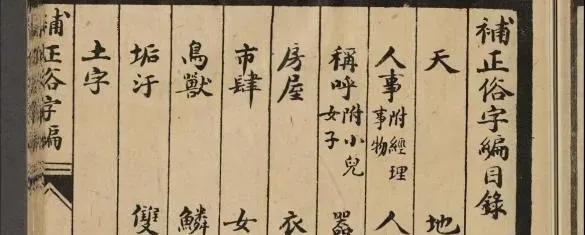 補正俗字編目錄
天 地
人事 附經理事物 人
稱呼 附小兒女子
房屋 衣
市肆 女
鳥獸 鱗
垢汙 雙
土字
補正俗字編